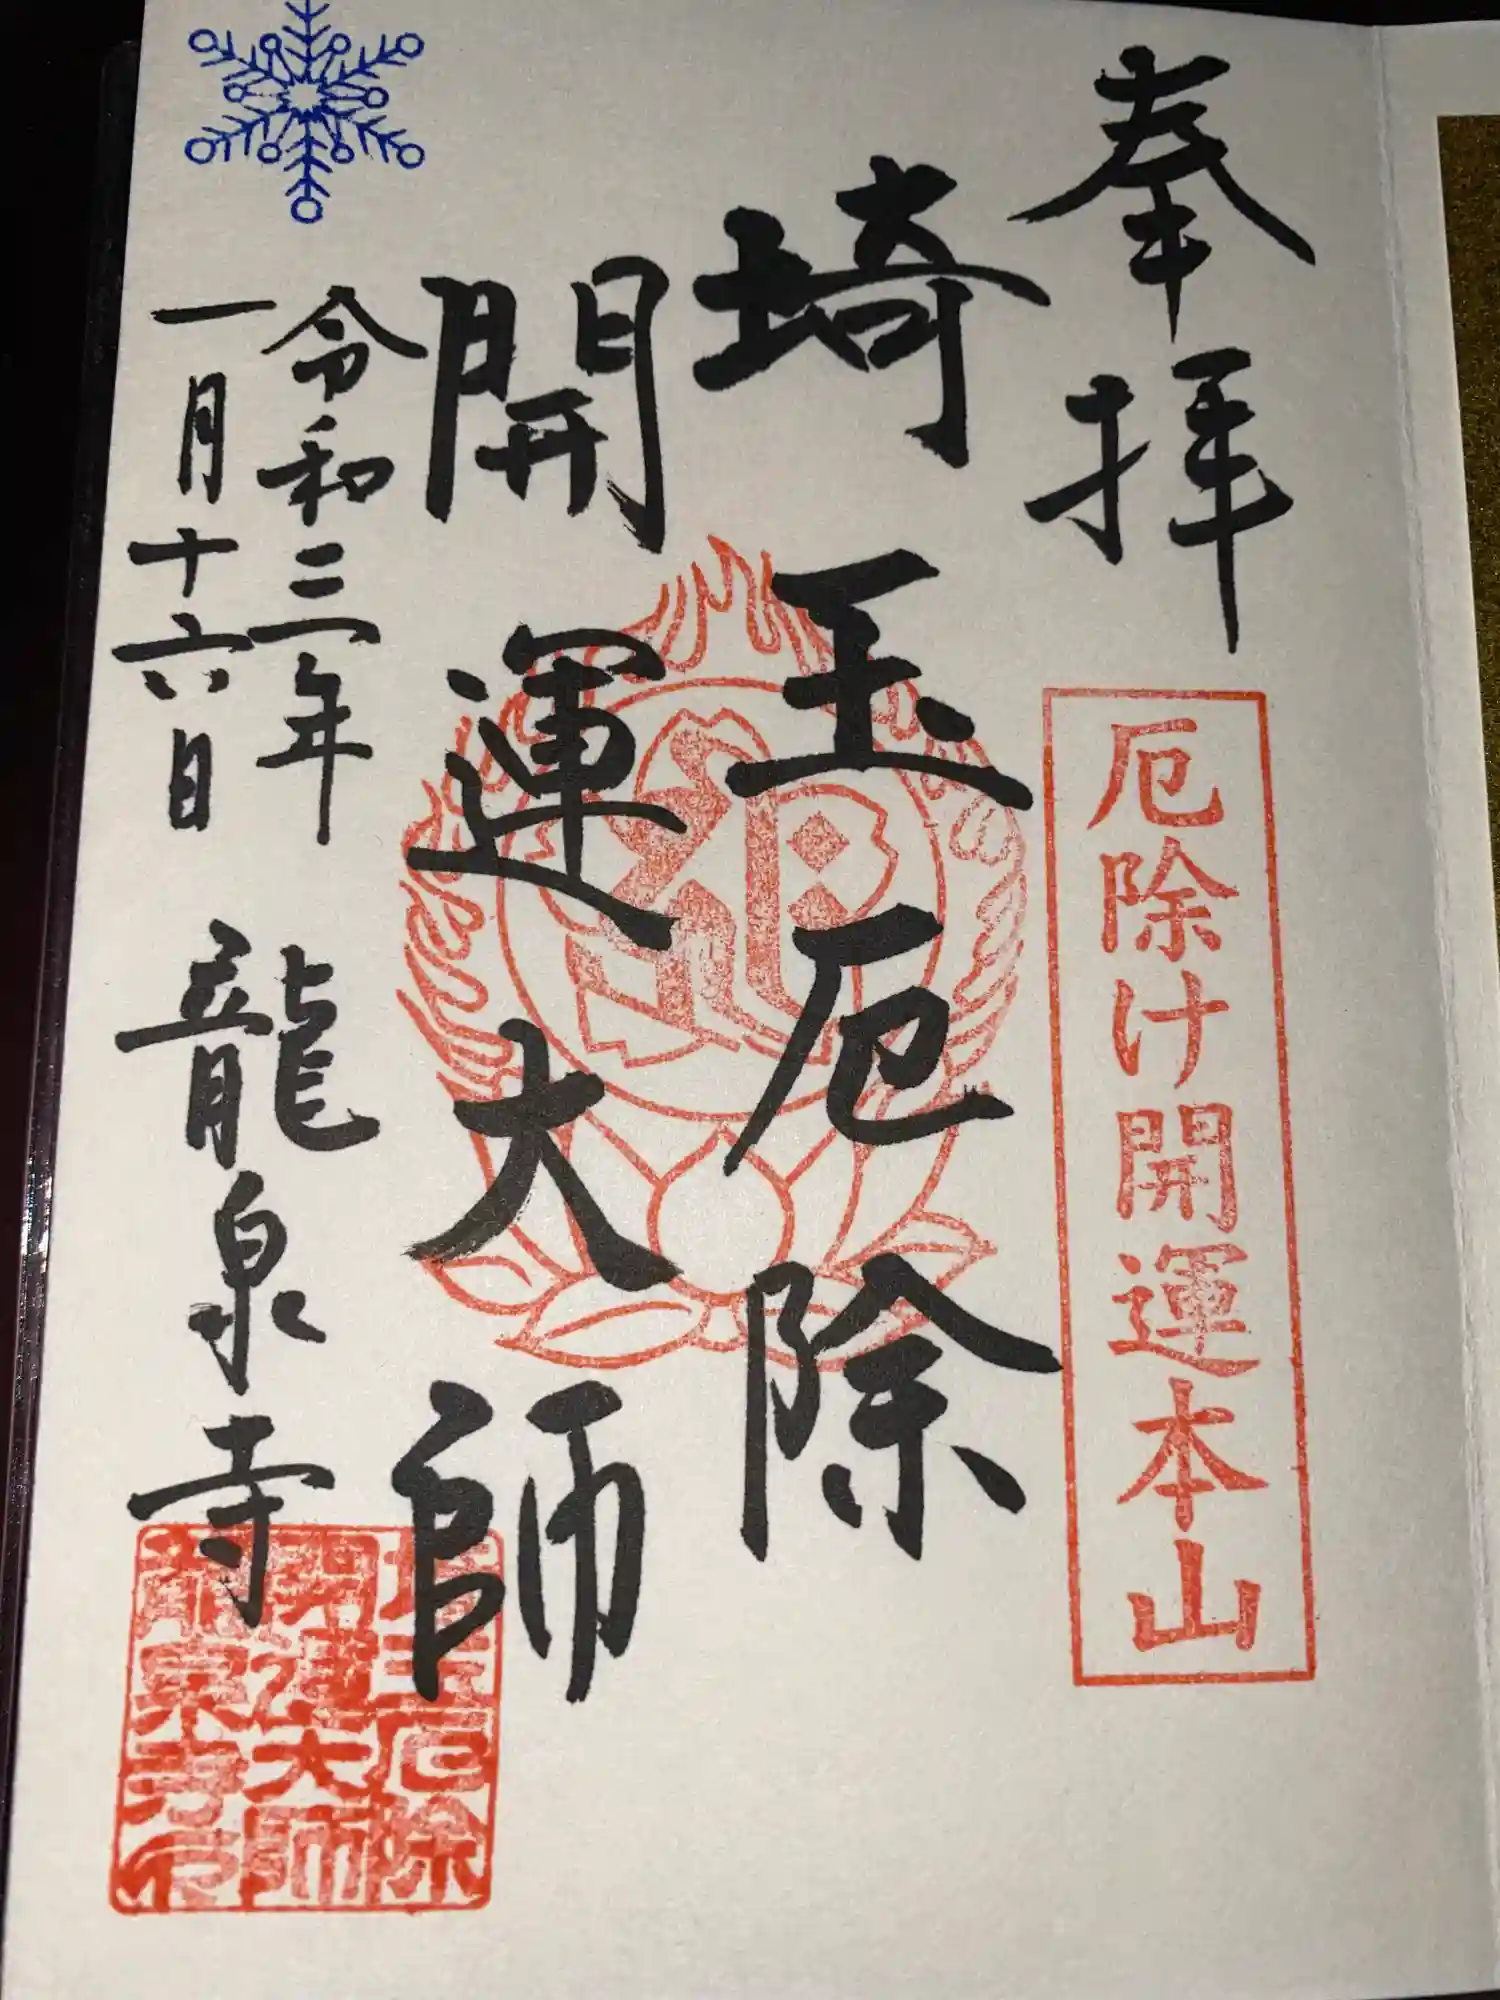 奉拝
厄除け開運本山
埼玉厄除
開運大師
令和三年
一月十六日
龍泉寺
埼玉厄除
開運大師
龍泉寺印